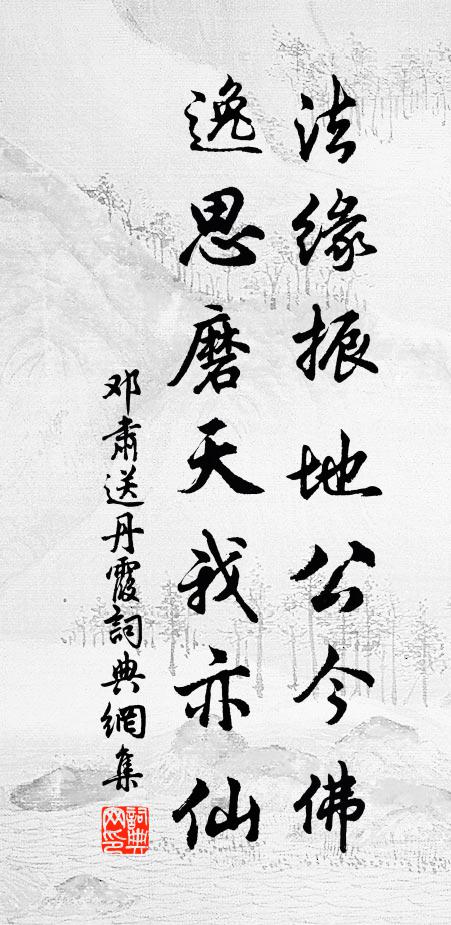 法緣振地公今佛
逸思磨天我亦仙
邓肅送丹霞詞典網集
詞典网印